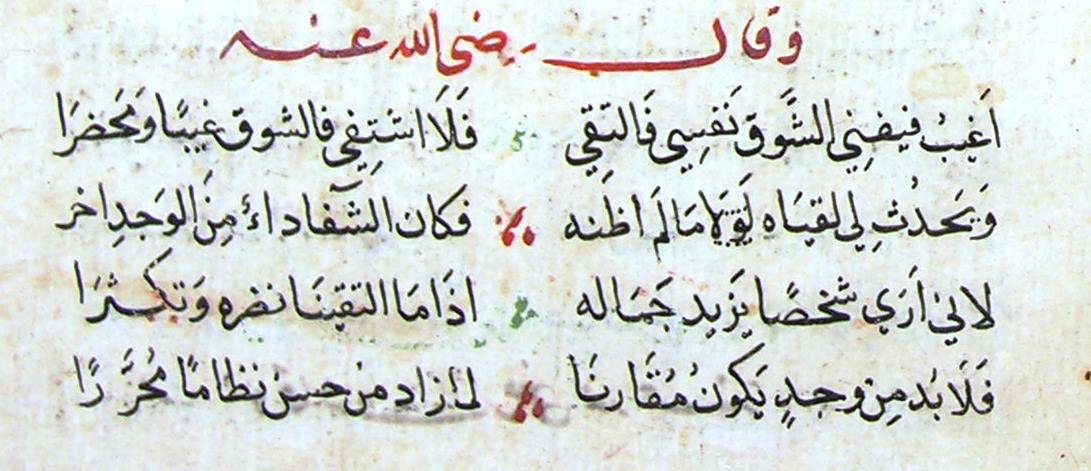 وقال رضي الله عنه
اَغيبُ فيفنِي الشَّوق نَفسِي فَالتَقِي فَلَا اشتِفِي فالشوق غيبًا وَمَحضرَا
وَيَحدُثِ لي لقيَاه مَا لَم اظنه فكان الشّفا داءً مِنَ الوَجدِ اخر
لاني اَرَي شخصًا يَزيد جَمَاله اذَا مَا التقينَا نضره وَتكثرَا
فَلَا بُد مِن وجدٍ يَكونُ مُقَارنَا لما زاد من حسن نظامًا مُحَرَّرًا